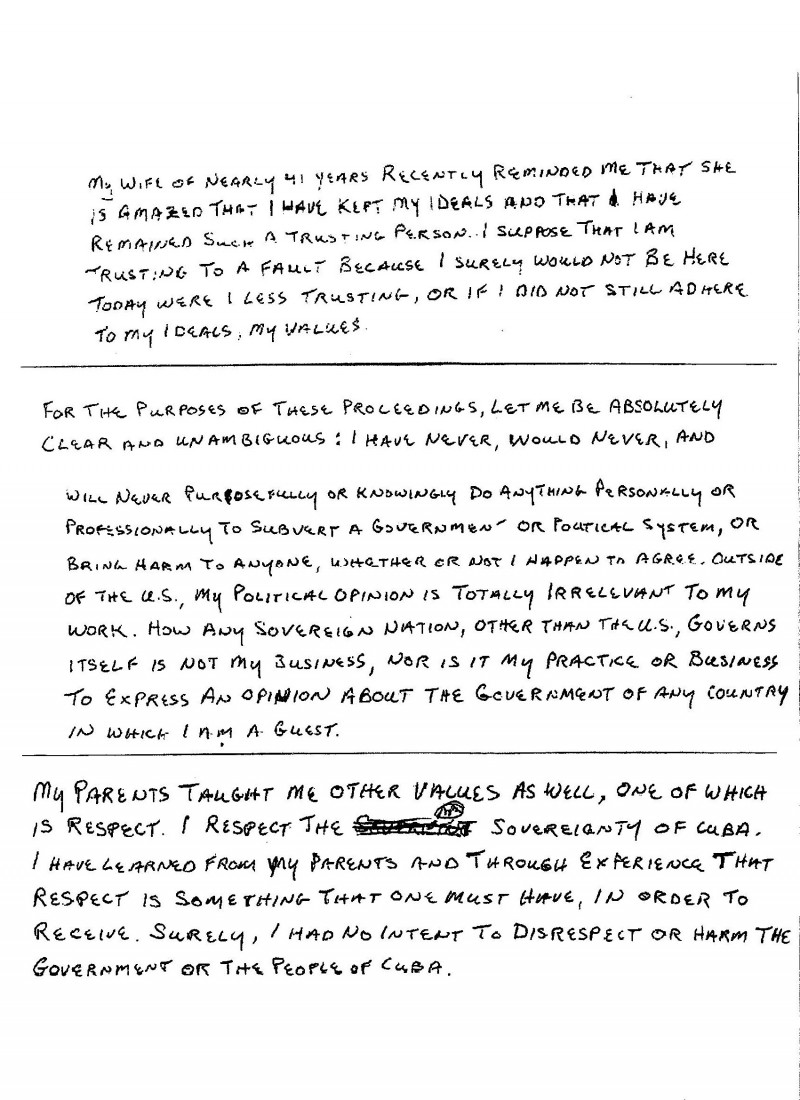 MY WIFE OF NEARLY 41 YEARS RECENTLY REMINDED ME THAT SHE
IS AMAZED THAT I HAVE KEPT MY IDEALS AND THAT I HAVE
REMAINED SUCH A TRUSTING PERSON. I SUPPOSE THAT I AM
TRUSTING TO A FAULT BECAUSE I SURELY WOULD NOT BE HERE
TODAY WERE I LESS TRUSTING, OR IF I DID NOT STILL ADHERE
TO MY IDEALS, MY VALUES.
FOR THE PURPOSES OF THESE PROCEEDINGS, LET ME BE ABSOLUTELY
CLEAR AND UNAMBIGUOUS: I HAVE NEVER, WOULD NEVER, AND
WILL NEVER PURPOSEFULLY OR KNOWINGLY DO ANYTHING PERSONALLY OR
PROFESSIONALLY TO SUBVERT A GOVERNMENT OR POLITICAL SYSTEM, OR
BRING HARM TO ANYONE, WHETHER OR NOT I HAPPEN TO AGREE. OUTSIDE
OF THE U.S., MY POLITICAL OPINION IS TOTALLY IRRELEVANT TO MY
WORK. HOW ANY SOVEREIGN NATION, OTHER THAN THE U.S., GOVERNS
ITSELF IS NOT MY BUSINESS, NOR IS IT MY PRACTICE OR BUSINESS
TO EXPRESS AN OPINION ABOUT THE GOVERNMENT OF ANY COUNTRY
IN WHICH I AM A GUEST.
MY PARENTS TAUGHT ME OTHER VALUES AS WELL, ONE OF WHICH
IS RESPECT. I RESPECT THE SOVEREIGNTY OF CUBA.
I HAVE LEARNED FROM MY PARENTS AND THROUGH EXPERIENCE THAT
RESPECT IS SOMETHING THAT ONE MUST HAVE, IN ORDER TO
RECEIVE. SURELY, I HAD NO INTENT TO DISRESPECT OR HARM THE
GOVERNMENT OR THE PEOPLE OF CUBA.